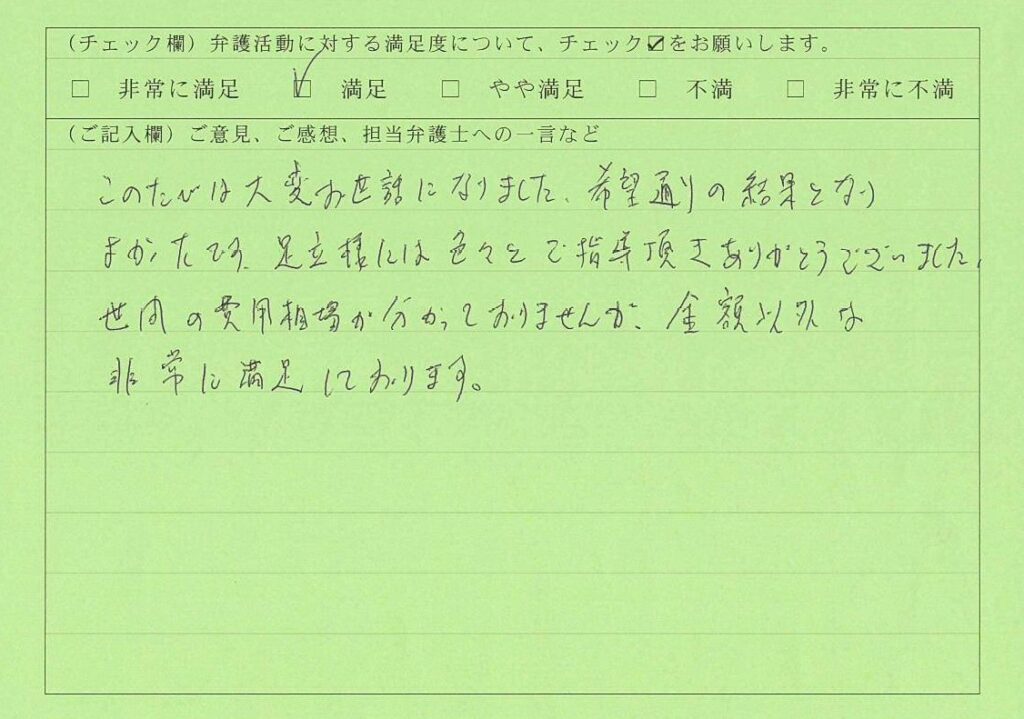 (チェック欄)弁護活動に対する満足度について、チェック☑をお願いします。
□ 非常に満足 ☑ 満足 □ やや満足 □ 不満 □ 非常に不満
(ご記入欄)ご意見、ご感想、担当弁護士への一言など
このたびは大変お世話になりました、希望通りの結果となり
よかったです、足立様には色々とご指導頂きありがとうございました、
世間の費用相場が分かっておりませんが、金額以外は
非常に満足しております。